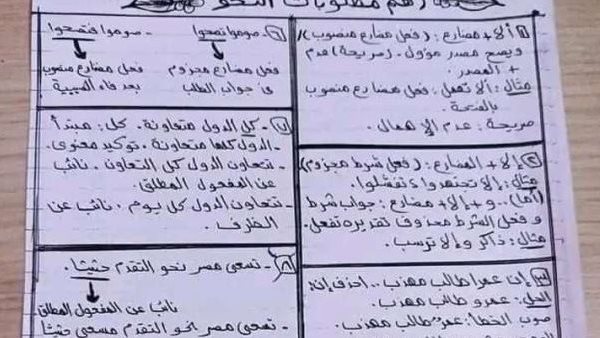 أهم مطلوبات النحو
١- ألا + مضارع : (فعل مضارع منصوب)
ويصح مصدر مؤول . (صريحة) عدم
+ المصدر .
مثال : ألا تهمل . فعل مضارع منصوب
بالفتحة .
صريحة : عدم الإهمال .
إلا + المضارع : (فعل شرط مجزوم)
مثال : إلا تجتهدوا تفشلوا .
(أما) .. و + إلا + مضارع : جواب شرط
و فعل الشرط محذوف تقديره تفعل .
مثال : ذاكر و إلا ترسب .
إن عمرا طالب مهذب .. احذف إن :
الحل : عمرو طالب مهذب .
صوب الخطأ : عمر طالب مهذب .
٦- صوموا تصحوا - صوموا فتصحوا
فعل مضارع مجزوم فعل مضارع منصوب
في جواب الطلب بعد فاء السببية
٧- كل الدول متعاونة . كل : مبتدأ
- الدول كلها متعاونة . توكيد معنوي .
- تتعاون الدول كل التعاون . نائب
عن المفعول المطلق .
- تتعاون الدول كل يوم . نائب عن
الظرف .
٨- تسعى مصر نحو التقدم حثيثا .
نائب عن المفعول المطلق
- تسعى مصر نحو التقدم مسعى حثيثا